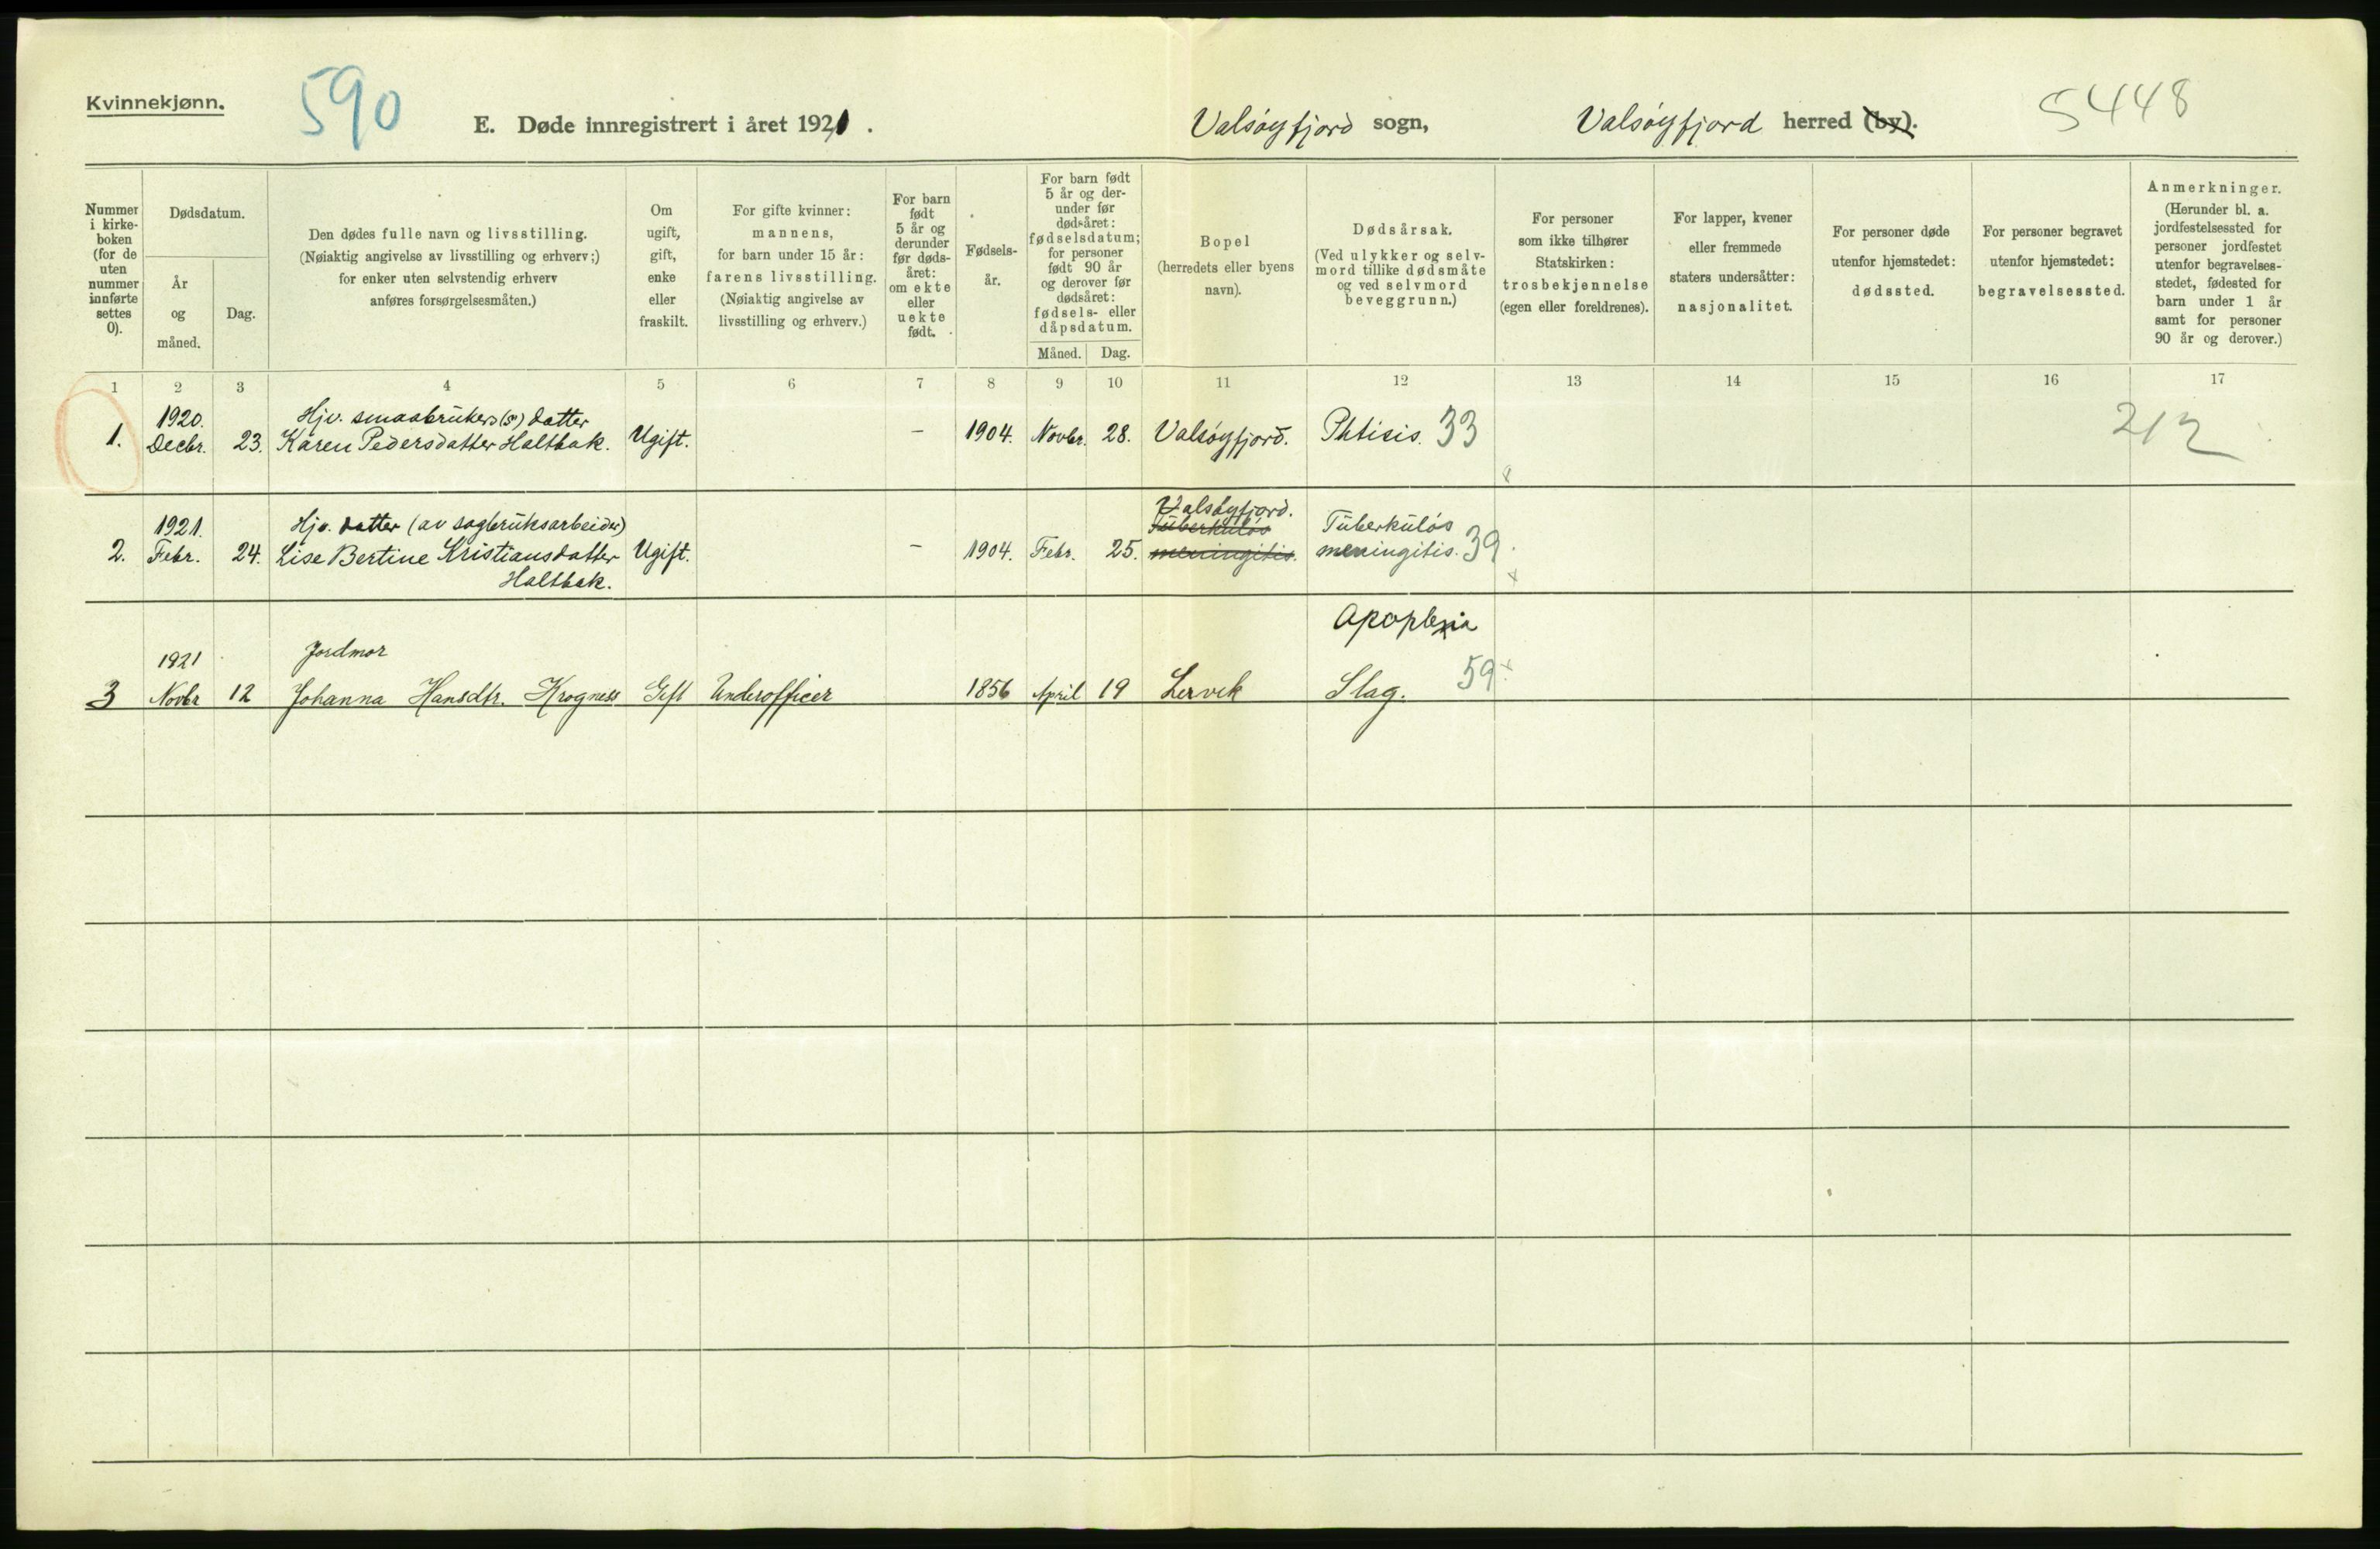 Kvinnekjønn.
590
E. Døde innregistrert i året 1921.
Valsøyfjord sogn,
Valsøyfjord herred (by).
5448
Nummer
i kirke-
boken
(for de
uten
nummer
innførte
settes
0).
Dødsdatum.
År
og
måned.
Dag.
Den dødes fulle navn og livsstilling.
(Nøiaktig angivelse av livsstilling og erhverv;)
for enker uten selvstendig erhverv
anføres forsørgelsesmåten.)
Om
ugift,
gift,
enke
eller
fraskilt.
For gifte kvinner:
mannens,
for barn under 15 år:
farens livsstilling.
(Nøiaktig angivelse av
livsstilling og erhverv.)
For barn
født
5 år og
derunder
før døds-
året:
om ekte
eller
uekte
født.
Fødsels-
år.
For barn født
5 år og der-
under før
dødsåret:
fødselsdatum;
for personer
født 90 år
og derover før
dødsåret:
fødsels- eller
dåpsdatum.
Måned. Dag.
Bopel
(herredets eller byens
navn).
Dødsårsak.
(Ved ulykker og selv-
mord tillike dødsmåte
og ved selvmord
beveggrunn.)
For personer
som ikke tilhører
Statskirken:
trosbekjennelse
(egen eller foreldrenes).
For lapper, kvener
eller fremmede
staters undersåtter:
nasjonalitet.
For personer døde
utenfor hjemstedet:
dødssted.
For personer begravet
utenfor hjemstedet:
begravelsessted.
Anmerkninger.
(Herunder bl. a.
jordfestelsessted for
personer jordfestet
utenfor begravelses-
stedet, fødested for
barn under 1 år
samt for personer
90 år og derover.)
1 2 3 4 5 6 7 8 9 10 11 12 13 14 15 16 17
1920. Hjv. smaabrükers (s) datter
1. Decbr. 23. Karen Pedersdatter Haltbak. Ugift. – 1904. Novbr. 28. Valsøyfjord. Phtisis. 33
1921. Hjv. datter (av sagbrüksarbeider) Valsøyfjord. Tüberkuløs Tüberküløs
2. Febr. 24. Lise Bertine Kristiansdatter Ugift. – 1904. Febr. 25. meningitis. meningitis. 39.
Haltbak.
Apoplexia
1921 Jordmor
3 Novbr 12 Johanna Hansdtr. Krogness Gift Underofficer 1856 April 19 Lervik Slag. 59